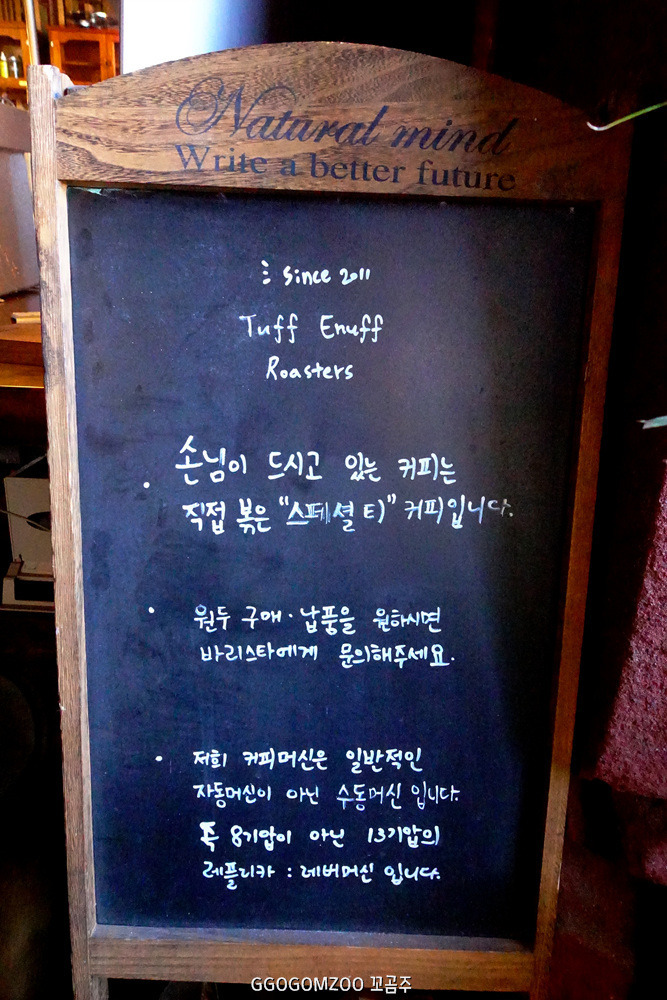 Natural mind
Write a better future
since 2011
Tuff Enuff
Roasters
· 손님이 드시고 있는 커피는
직접 볶은 "스페셜티" 커피입니다.
· 원두 구매·납품을 원하시면
바리스타에게 문의해주세요.
· 저희 커피머신은 일반적인
자동머신이 아닌 수동머신 입니다.
즉 8기압이 아닌 13기압의
레플리카 : 레버머신 입니다.
GGOGOMZOO 꼬곰주